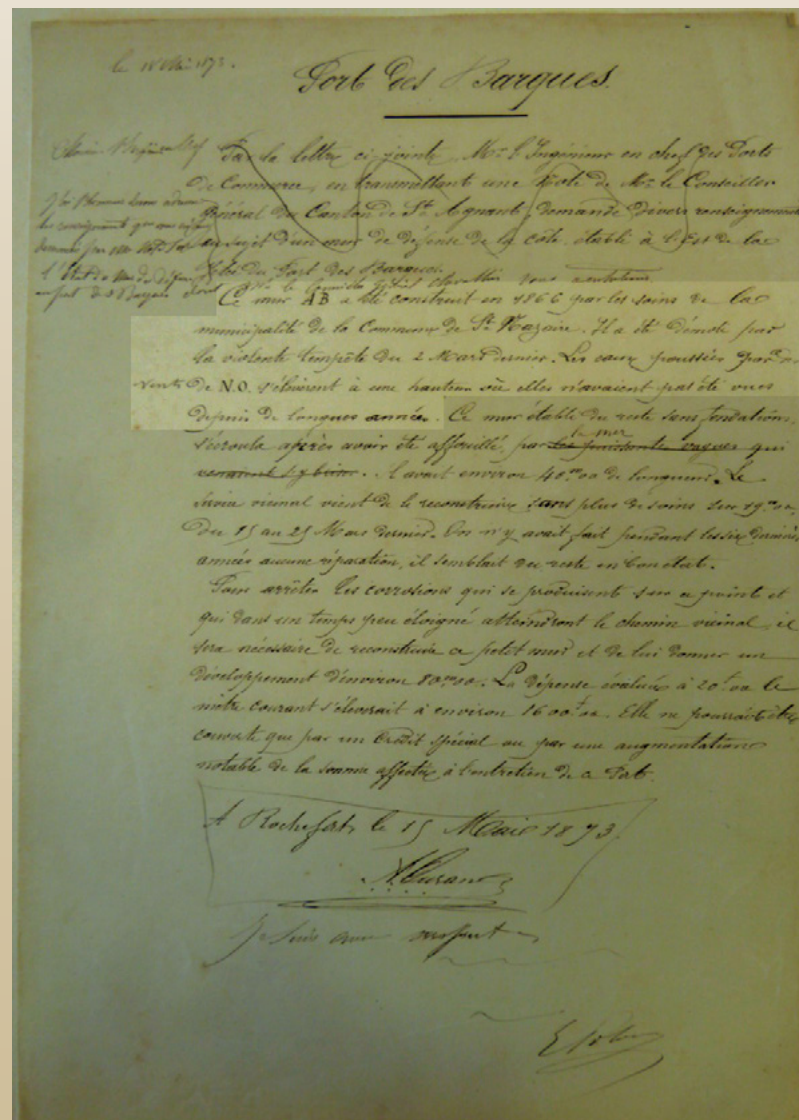 le 18 Mai 1873.
Port des Barques.
Par la lettre ci jointe, Mr. l'Ingénieur en chef des Ports
de Commerce, en transmettant une Note de Mr. le Conseiller
général du Canton de St. Agnant, demande divers renseignements
au sujet d'un mur de défense de la côte, établi à l'Est de la
du Port des Barques.
Ce mur AB a été construit en 1866 par les soins de la
municipalité de la Commune de St. Nazaire. Il a été démoli par
la violente tempête du 2 Mars dernier. Les eaux poussées par des
vents de N.O. s'élevèrent à une hauteur où elles n'avaient pas été vues
depuis de longues années. Ce mur établi du reste sans fondations,
s'écroula après avoir été affouillé, par les puissantes vagues qui
la mer
venaient s'y briser. Il avait environ 40.m00 de longueur. Le
service vicinal vient de le reconstruire sans plus de soins sur 19.m00,
du 15 au 25 Mars dernier. On n'y avait fait pendant les six dernières
années aucune réparation, il semblait du reste en bon état.
Pour arrêter les corrosions qui se produisent sur ce point et
qui dans un temps peu éloigné atteindront le chemin vicinal, il
sera nécessaire de reconstruire ce petit mur et de lui donner un
développement d'environ 80.m00. La dépense évaluée à 20.f00 le
mètre courant s'élèverait à environ 1600.f00. Elle ne pourrait être
couverte que par un Crédit spécial ou par une augmentation
notable de la somme affectée à l'entretien de ce Port.
A Rochefort, le 15 Mai 1873.
Je suis avec respect